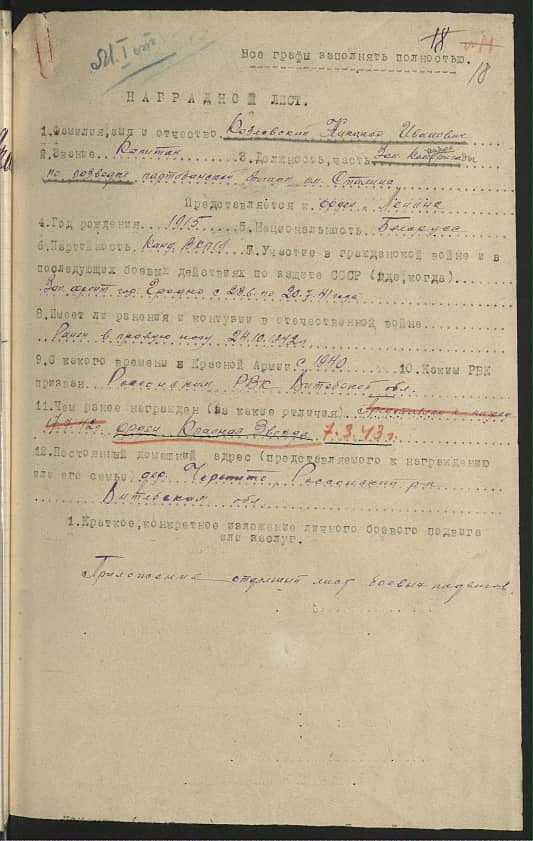 18
Все графы заполнять полностью.
18
НАГРАДНОЙ ЛИСТ.
1.Фамилия,имя и отчество Козловский Иванович
2.Звание Капитан 3.Должность,часть Зам. Комбригады
по разведке партизанской бригады им. Сталина
Представляется к ордену Ленина
4.Год рождения 1915 5.Национальность Беларус
6.Партийность Канд. ВКП(б) 7.Участие в гражданской войне и в
последующих боевых действиях по защите СССР (где,когда)
Зап. фронт гор. Гродно с 22.6 по 20.7.41 года
8.Имеет ли ранения и контузии в отечественной войне
Ранен в правую ногу 24.10.1942г.
9.С какого времени в Красной Армии с 1940 10.Каким РВК
призван Россонским РВК Витебской обл.
11.Чем ранее награжден (за какие отличия)
орден Красная Звезда 7.3.43г.
12.Постоянный домашний адрес (представляемого к награждению
или его семьи дер. Россонский р-н
Витебская обл.
1.Краткое,конкретное изложение личного боевого подвига
или заслуг.
Приложение отдельный лист боевых подвигов.